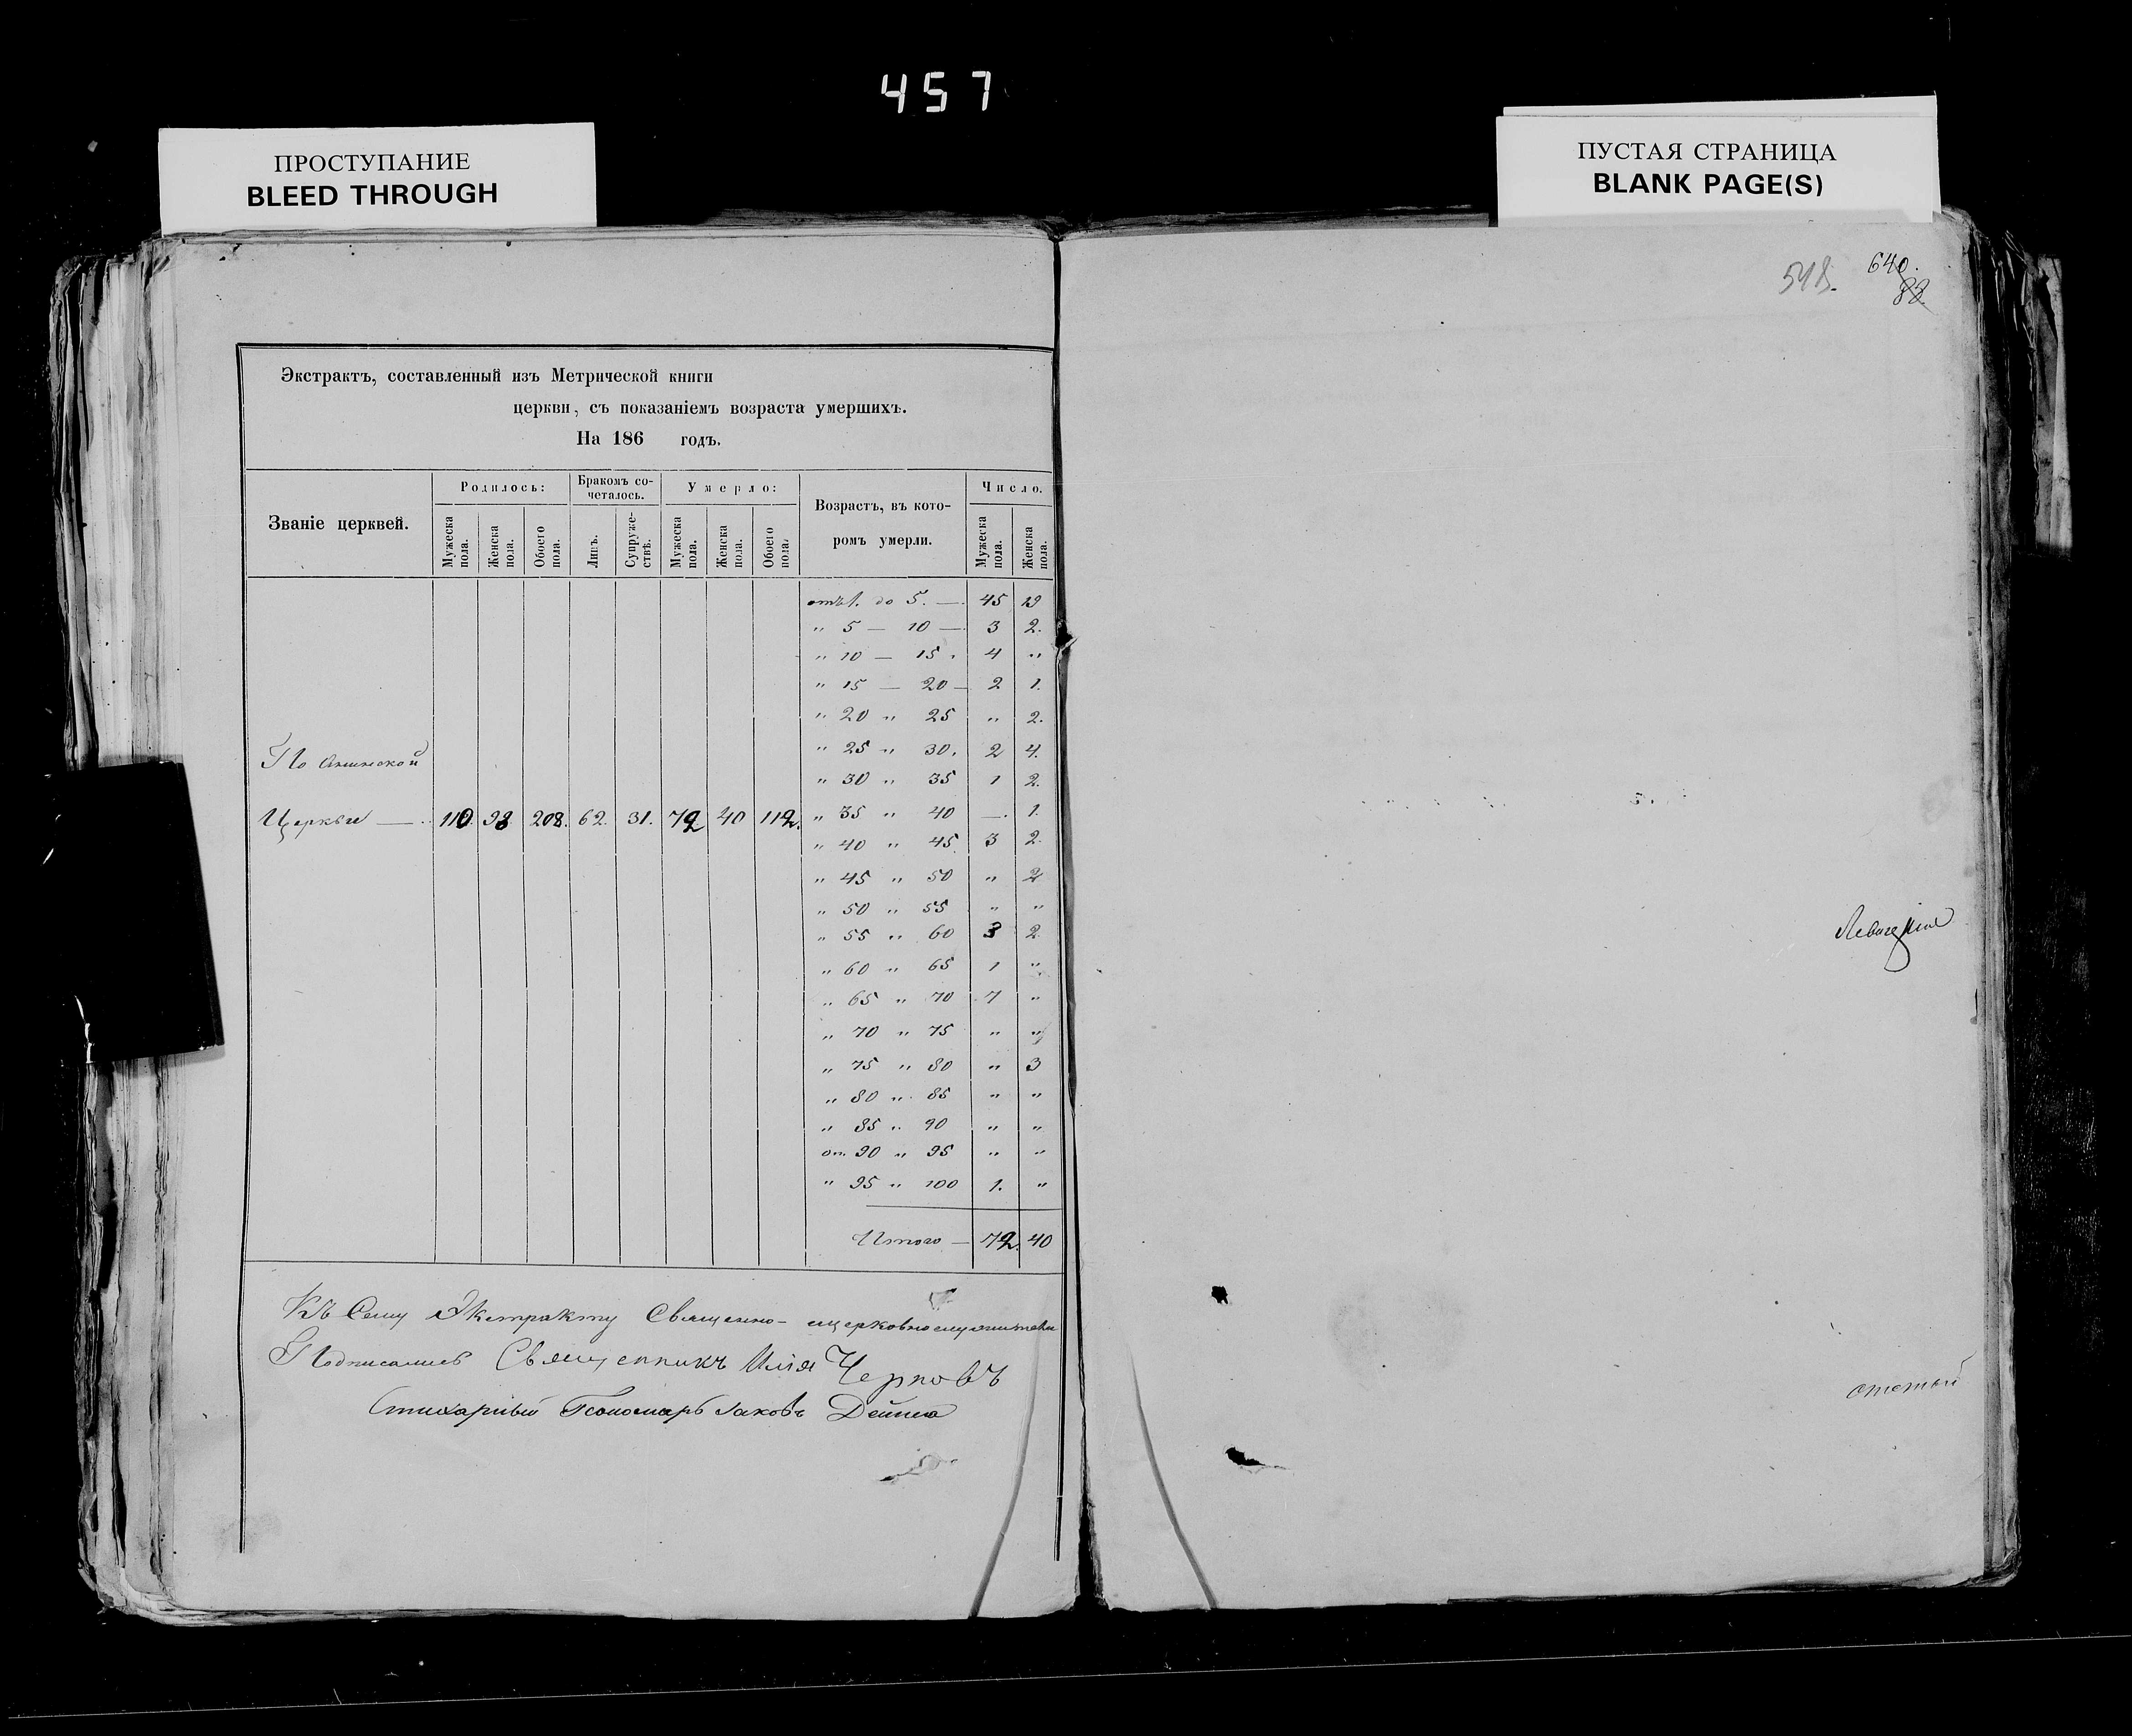 457
ПРОСТУПАНИЕ
BLEED THROUGH
ПУСТАЯ СТРАНИЦА
BLANK PAGE(S)
518. 640.
88
Экстрактъ, составленный изъ Метрической книги
церкви, съ показаніемъ возраста умершихъ.
На 186 годъ.
Званіе церквей.
Родилось:
Бракомъ со-
четалось.
Умерло:
Возрастъ, въ кото-
ромъ умерли.
Число.
Мужеска пола.
Женска пола.
Обоего пола.
Лицъ.
Супруже-
ствъ.
Мужеска пола.
Женска пола.
Обоего пола.
Мужеска пола.
Женска пола.
отъ 1. до 5. — 45 19
„ 5 — 10 — 3 2.
„ 10 — 15 „ 4 „
„ 15 — 20 — 2 1.
„ 20 „ 25 „ 2.
„ 25 „ 30. 2 4.
„ 30 „ 35 1 2.
По Анинской
Церкви — 110. 98 208. 62. 31. 72 40 112.
„ 35 „ 40 —. 1.
„ 40 „ 45. 3 2.
„ 45 „ 50 „ 2
„ 50 „ 55 „ „
„ 55 „ 60 3 2.
„ 60 „ 65 1 „
„ 65 „ 70 7 „
„ 70 „ 75 „ „
„ 75 „ 80 „ 3
„ 80 „ 85 „ „
„ 85 „ 90 „ „
от 90 „ 95 „ „
„ 95 „ 100 1. „
Итого — 72. 40
Къ Сему Экстракту Священно-церковнослужители
Подписались Священникъ Илія Черновъ
Стихарный Пономарь Іаковъ